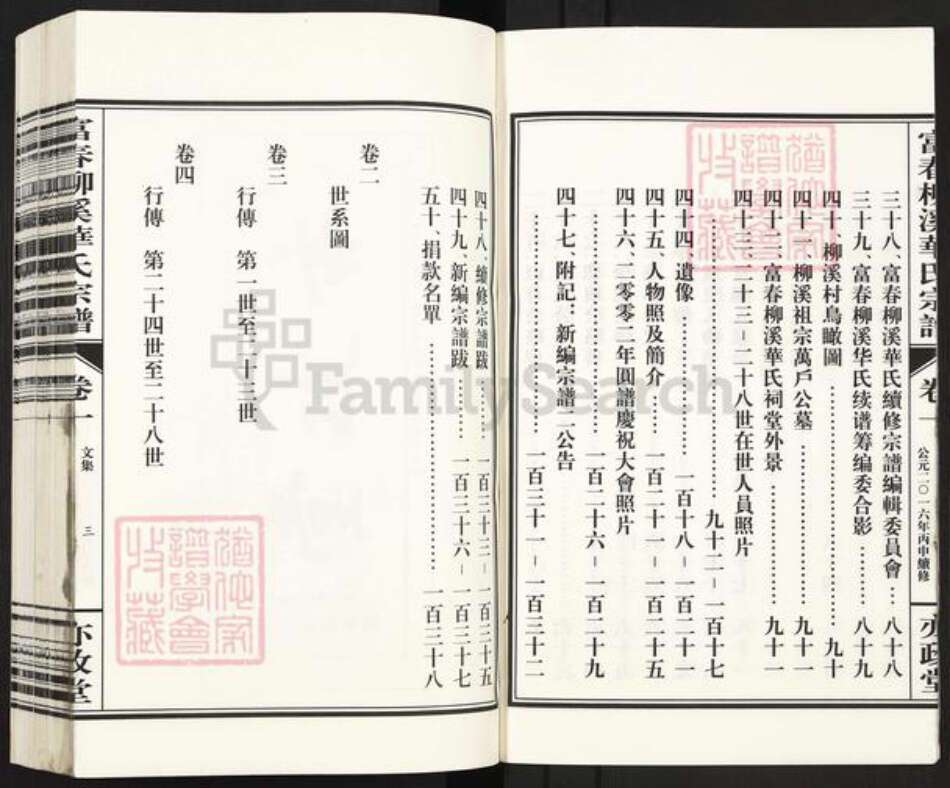 富春柳溪華氏宗譜 卷一 公元二〇一六年丙申續修 亦政堂
三十八、富春柳溪華氏續修宗譜編輯委員會…八十八
三十九、富春柳溪华氏续谱筹编委合影………八十九
四十、柳溪村鳥瞰圖………九十
四十一、柳溪祖宗萬戶公墓………九十一
四十二、富春柳溪華氏祠堂外景………九十一
四十三、二十三－二十八世在世人員照片
………九十二－一百十七
四十四、遺像………一百十八－一百二十一
四十五、人物照及簡介…一百二十一－一百二十五
四十六、二零零二年圓譜慶祝大會照片
………一百二十六－一百二十九
四十七、附記：新編宗譜二公告
………一百三十一－一百三十二
四十八、續修宗譜跋………一百三十三－一百三十五
四十九、新編宗譜跋………一百三十六－一百三十七
五十、捐款名單………一百三十八
卷二
世系圖
卷三
行傳 第一世至二十三世
卷四
行傳 第二十四世至二十八世
富春柳溪華氏宗譜 卷一 文集 三 亦政堂
FamilySearch